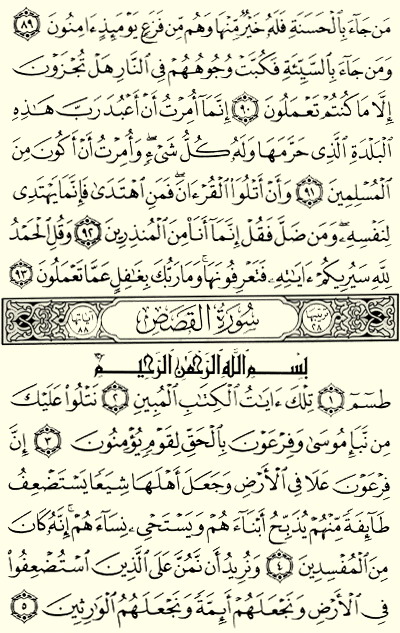 مَن جَآءَ بِٱلْحَسَنَةِ فَلَهُۥ خَيْرٌ مِّنْهَا وَهُم مِّن فَزَعٍ يَوْمَئِذٍ ءَامِنُونَ ٨٩
وَمَن جَآءَ بِٱلسَّيِّئَةِ فَكُبَّتْ وُجُوهُهُمْ فِى ٱلنَّارِ هَلْ تُجْزَوْنَ
إِلَّا مَا كُنتُمْ تَعْمَلُونَ ٩٠ إِنَّمَآ أُمِرْتُ أَنْ أَعْبُدَ رَبَّ هَٰذِهِ
ٱلْبَلْدَةِ ٱلَّذِى حَرَّمَهَا وَلَهُۥ كُلُّ شَىْءٍ ۖ وَأُمِرْتُ أَنْ أَكُونَ مِنَ
ٱلْمُسْلِمِينَ ٩١ وَأَنْ أَتْلُوَا۟ ٱلْقُرْءَانَ ۖ فَمَنِ ٱهْتَدَىٰ فَإِنَّمَا يَهْتَدِى
لِنَفْسِهِۦ ۖ وَمَن ضَلَّ فَقُلْ إِنَّمَآ أَنَا۠ مِنَ ٱلْمُنذِرِينَ ٩٢ وَقُلِ ٱلْحَمْدُ
لِلَّهِ سَيُرِيكُمْ ءَايَٰتِهِۦ فَتَعْرِفُونَهَا ۚ وَمَا رَبُّكَ بِغَٰفِلٍ عَمَّا تَعْمَلُونَ ٩٣
ترتيبها ٢٨ سُورَةُ القَصَصِ آياتها ٨٨
بِسْمِ ٱللَّهِ ٱلرَّحْمَٰنِ ٱلرَّحِيمِ
طسٓمٓ ١ تِلْكَ ءَايَٰتُ ٱلْكِتَٰبِ ٱلْمُبِينِ ٢ نَتْلُوا۟ عَلَيْكَ
مِن نَّبَإِ مُوسَىٰ وَفِرْعَوْنَ بِٱلْحَقِّ لِقَوْمٍ يُؤْمِنُونَ ٣ إِنَّ
فِرْعَوْنَ عَلَا فِى ٱلْأَرْضِ وَجَعَلَ أَهْلَهَا شِيَعًا يَسْتَضْعِفُ
طَآئِفَةً مِّنْهُمْ يُذَبِّحُ أَبْنَآءَهُمْ وَيَسْتَحْىِۦ نِسَآءَهُمْ ۚ إِنَّهُۥ كَانَ
مِنَ ٱلْمُفْسِدِينَ ٤ وَنُرِيدُ أَن نَّمُنَّ عَلَى ٱلَّذِينَ ٱسْتُضْعِفُوا۟
فِى ٱلْأَرْضِ وَنَجْعَلَهُمْ أَئِمَّةً وَنَجْعَلَهُمُ ٱلْوَٰرِثِينَ ٥